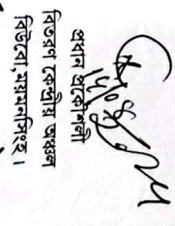 প্রধান প্রকৌশলী
বিতরণ কেন্দ্রীয় অঞ্চল
বিউবো, ময়মনসিংহ।